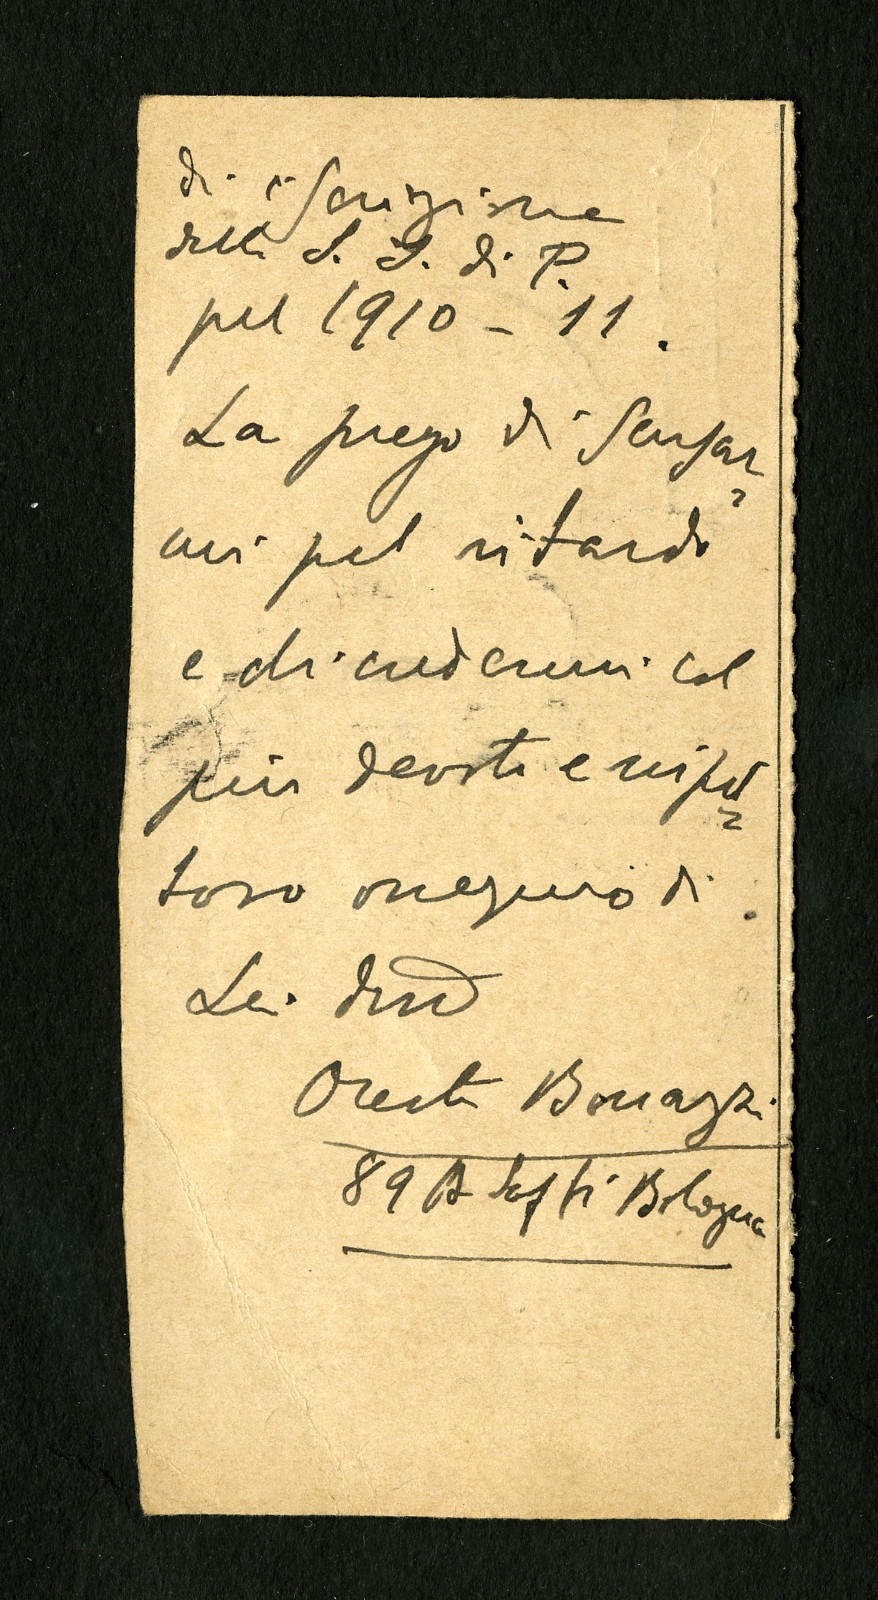 di iscrizione
della S. I. di P.
pel 1910 - 11.
La prego di scusar=
mi pel ritardo
e di credermi col
più devoto e rispet=
toso ossequio di
Lei dev
Oreste Bonazzi
89 A Saffi Bologna